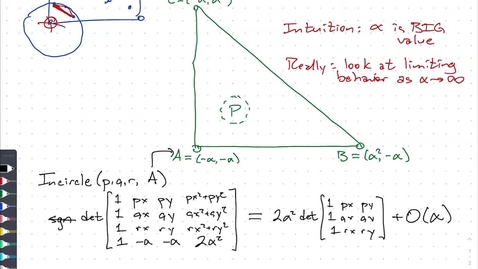 Intuition: α is BIG
value
Really: look at limiting
behavior as α→∞
P
A=(-α,-α)
B=(α²,-α)
Incircle(p,q,r, A)
det [1 px py px²+py²
1 qx qy qx²+qy²
1 rx ry rx²+ry²
1 -a -a 2a²] = 2a² det [1 px py
1 qx qy
1 rx ry] + O(α)